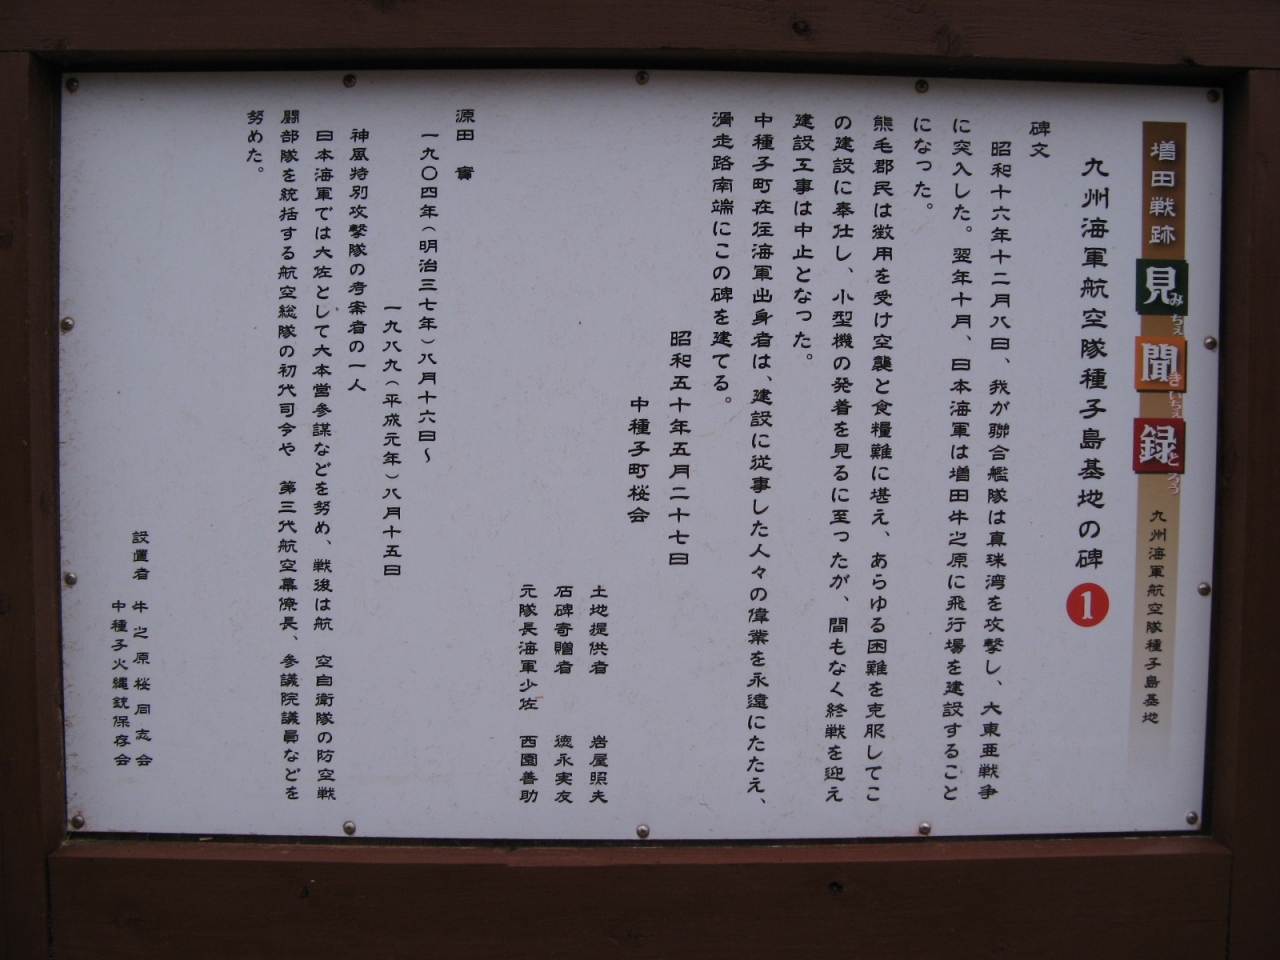 増田戦跡 見聞録 九州海軍航空隊種子島基地
みちぇ きいちぇ とろう
九州海軍航空隊種子島基地の碑 1
碑文
昭和十六年十二月八日、我が聯合艦隊は真珠湾を攻撃し、大東亜戦争
に突入した。翌年十月、日本海軍は増田牛之原に飛行場を建設すること
になった。
熊毛郡民は徴用を受け空襲と食糧難に堪え、あらゆる困難を克服してこ
の建設に奉仕し、小型機の発着を見るに至ったが、間もなく終戦を迎え
建設工事は中止となった。
中種子町在住海軍出身者は、建設に従事した人々の偉業を永遠にたたえ、
滑走路南端にこの碑を建てる。
昭和五十年五月二十七日
中種子町桜会
土地提供者 岩屋照夫
石碑寄贈者 徳永実友
元隊長海軍少佐 西園善助
源田 實
一九〇四年(明治三七年)八月十六日~
一九八九(平成元年)八月十五日
神風特別攻撃隊の考案者の一人
日本海軍では大佐として大本営参謀などを努め、戦後は航 空自衛隊の防空戦
闘部隊を統括する航空総隊の初代司令や 第三代航空幕僚長、参議院議員などを
努めた。
設置者 牛之原桜同志会
中種子火縄銃保存会